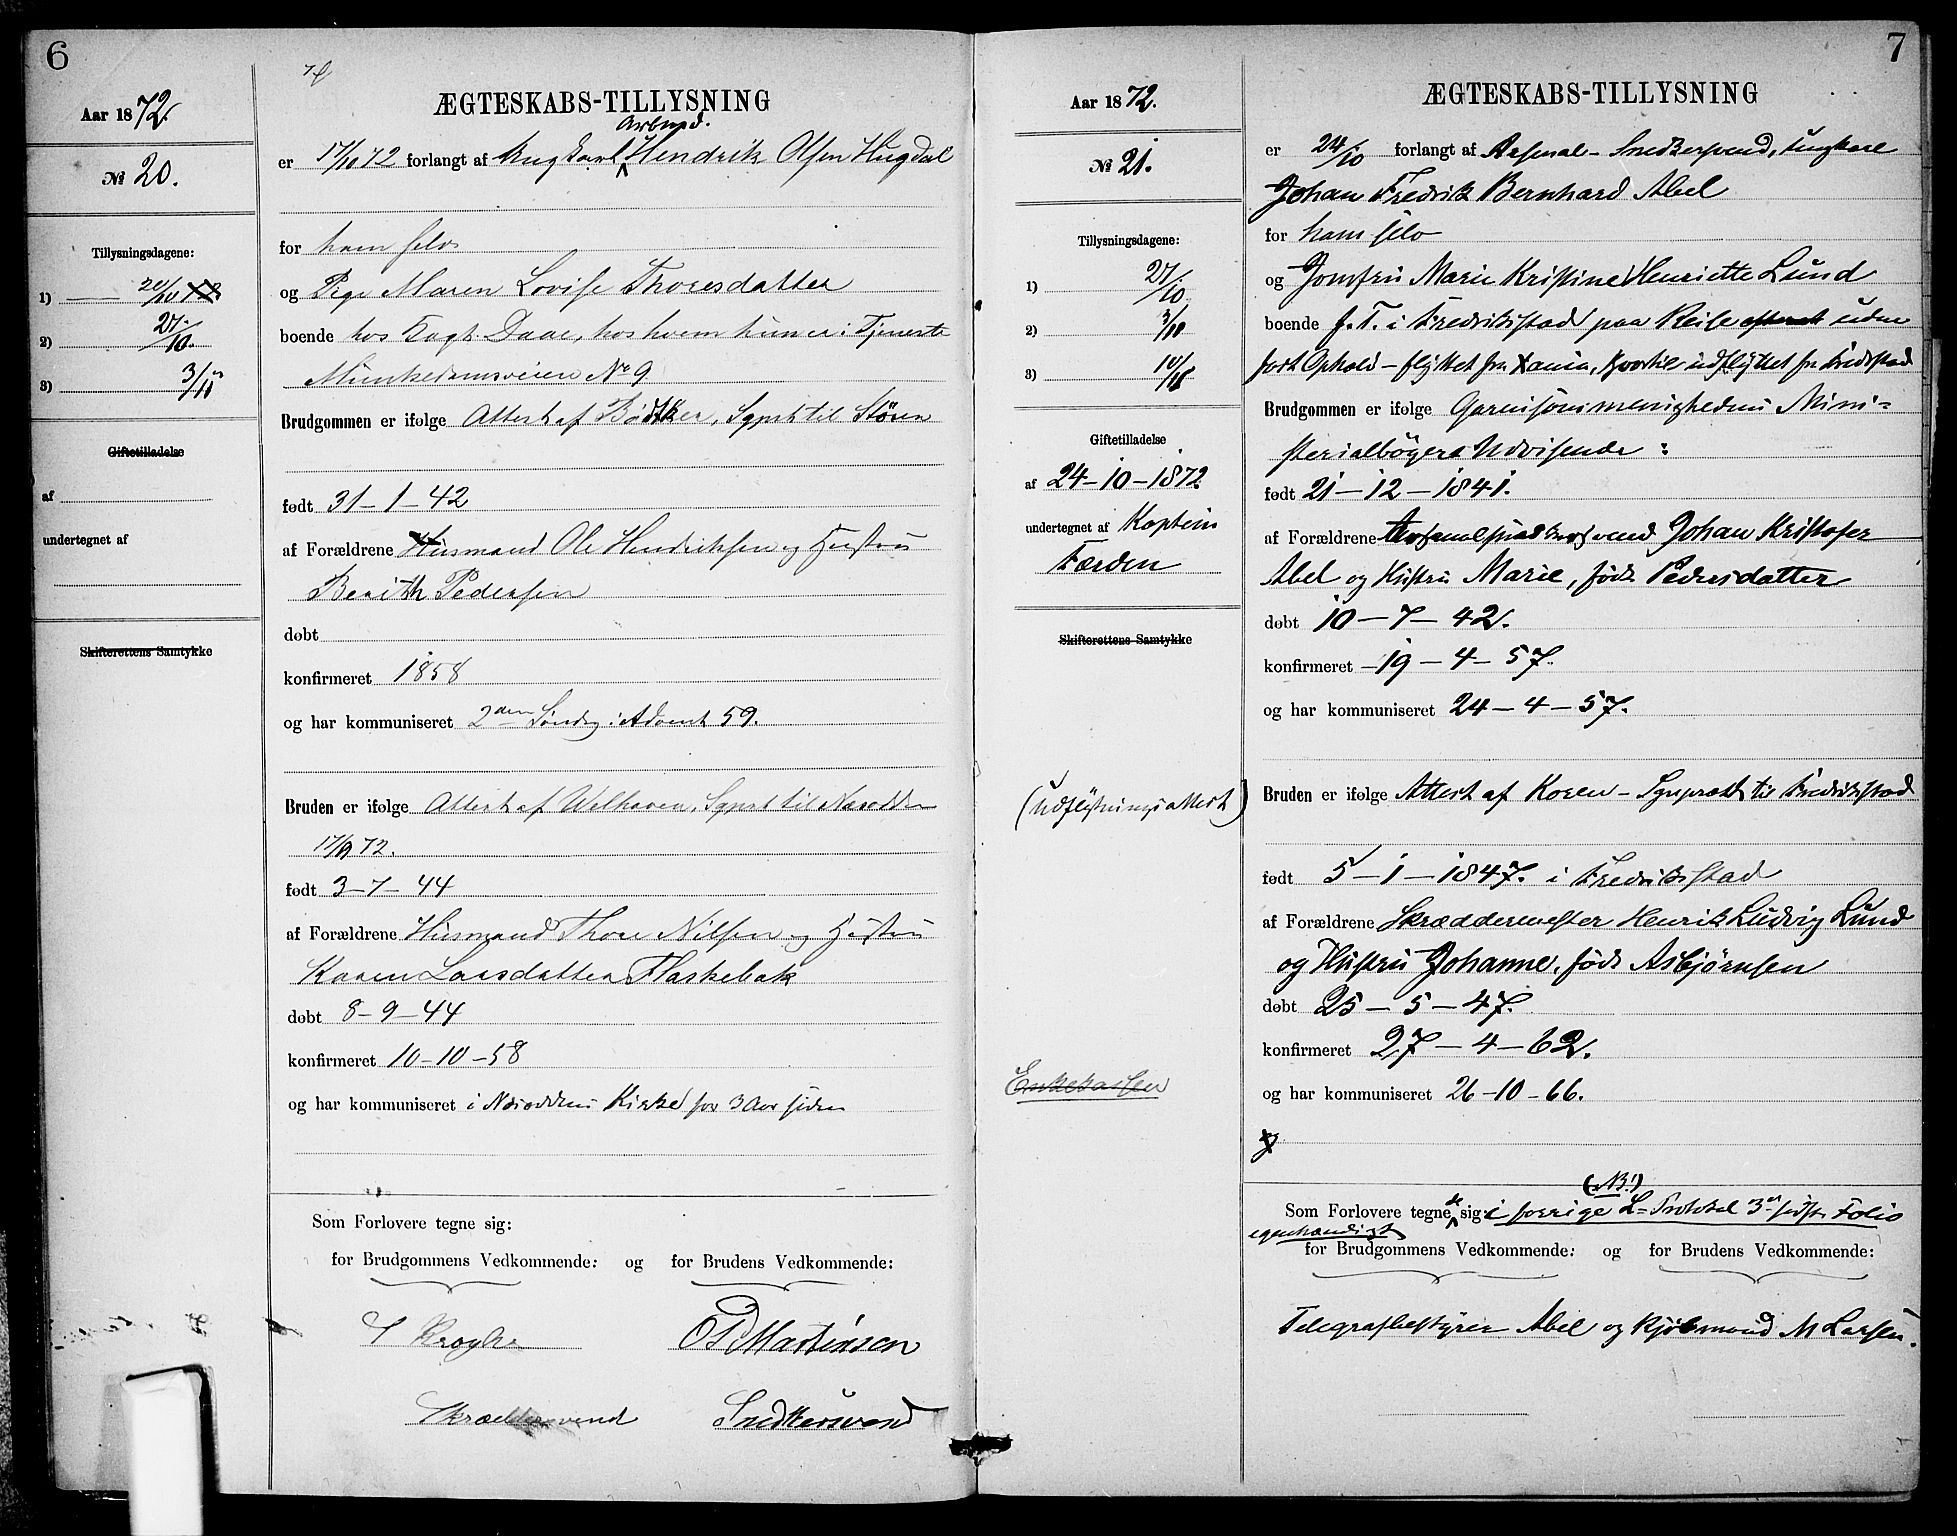 6
Aar 1872.
№ 20.
Tillysningsdagene:
1) 20/10
2) 27/10.
3) 3/11
Giftetilladelse
af
undertegnet af
Skifterettens Samtykke
ÆGTESKABS-TILLYSNING
Arbmd.
er 17/10 72 forlangt af Ungkarl Hendrik Olsen Hugdal
for ham selv
og Pige Maren Lovise Thoresdatter
boende hos Kapt. Daae, hos hvem hun er i Tjeneste
Munkedamsveien No 9
Brudgommen er ifølge Attest af Bødtker, Sgpst til Stören
født 31-1-42
af Forældrene Husmand Ole Hendriksen og Hustru
Berith Pedersen
døbt
konfirmeret 1858
og har kommuniseret 2den Søndag i Advent 59.
Bruden er ifølge Attest af Welhaven, Sgpst til Næsodden
17/9 72.
født 3-7-44
af Forældrene Husmand Thore Nilsen og Hustru
Karen Larsdatter Flaskebak
døbt 8-9-44
konfirmeret 10-10-58
og har kommuniseret i Næsoddens Kirke for 3 Aar siden
Som Forlovere tegne sig:
for Brudgommens Vedkommende: og for Brudens Vedkommende:
Krogh
Martinsen
Skræddersvend
Snedkersvend
7
Aar 1872.
№ 21.
Tillysningsdagene:
1) 27/10
2) 3/11
3) 10/11
Giftetilladelse
af 24-10-1872
undertegnet af Kaptein
Færden
Skifterettens Samtykke
(Udflytningsattest)
Enkekassen
ÆGTESKABS-TILLYSNING
er 24/10 forlangt af Arsenal-Snedkersvend, Ungkarl
Johan Fredrik Bernhard Abel
for ham selv
og Jomfru Marie Kristine Henriette Lund
boende f. T. i Fredrikstad paa Reise uden
fast Ophold - flyttet fra Xania, hvortil udflyttet fra Fredstad
Brudgommen er ifølge Garnisonsmenighedens Mini-
sterialbøgers Udvisende:
født 21-12-1841.
af Forældrene Arsenalsnedkersvend Johan Kristofer
Abel og Hustru Marie, født Pedersdatter
døbt 10-7-42.
konfirmeret 19-4-57.
og har kommuniseret 24-4-57.
Bruden er ifølge Attest af Koren - Sgnpræst til Fredrikstad
født 5-1-1847. i Fredrikstad
af Forældrene Skræddermester Henrik Ludvig Lund
og Hustru Johanne, født Asbjørnsen
døbt 25-5-47.
konfirmeret 27-4-62.
og har kommuniseret 26-10-66.
(NB!)
Som Forlovere tegne de sig: i forrige L-Protokol 3die sidste Folio
egenhændigt
for Brudgommens Vedkommende: og for Brudens Vedkommende:
Telegrafbestyrer Abel og Kjøbmand M Larsen.